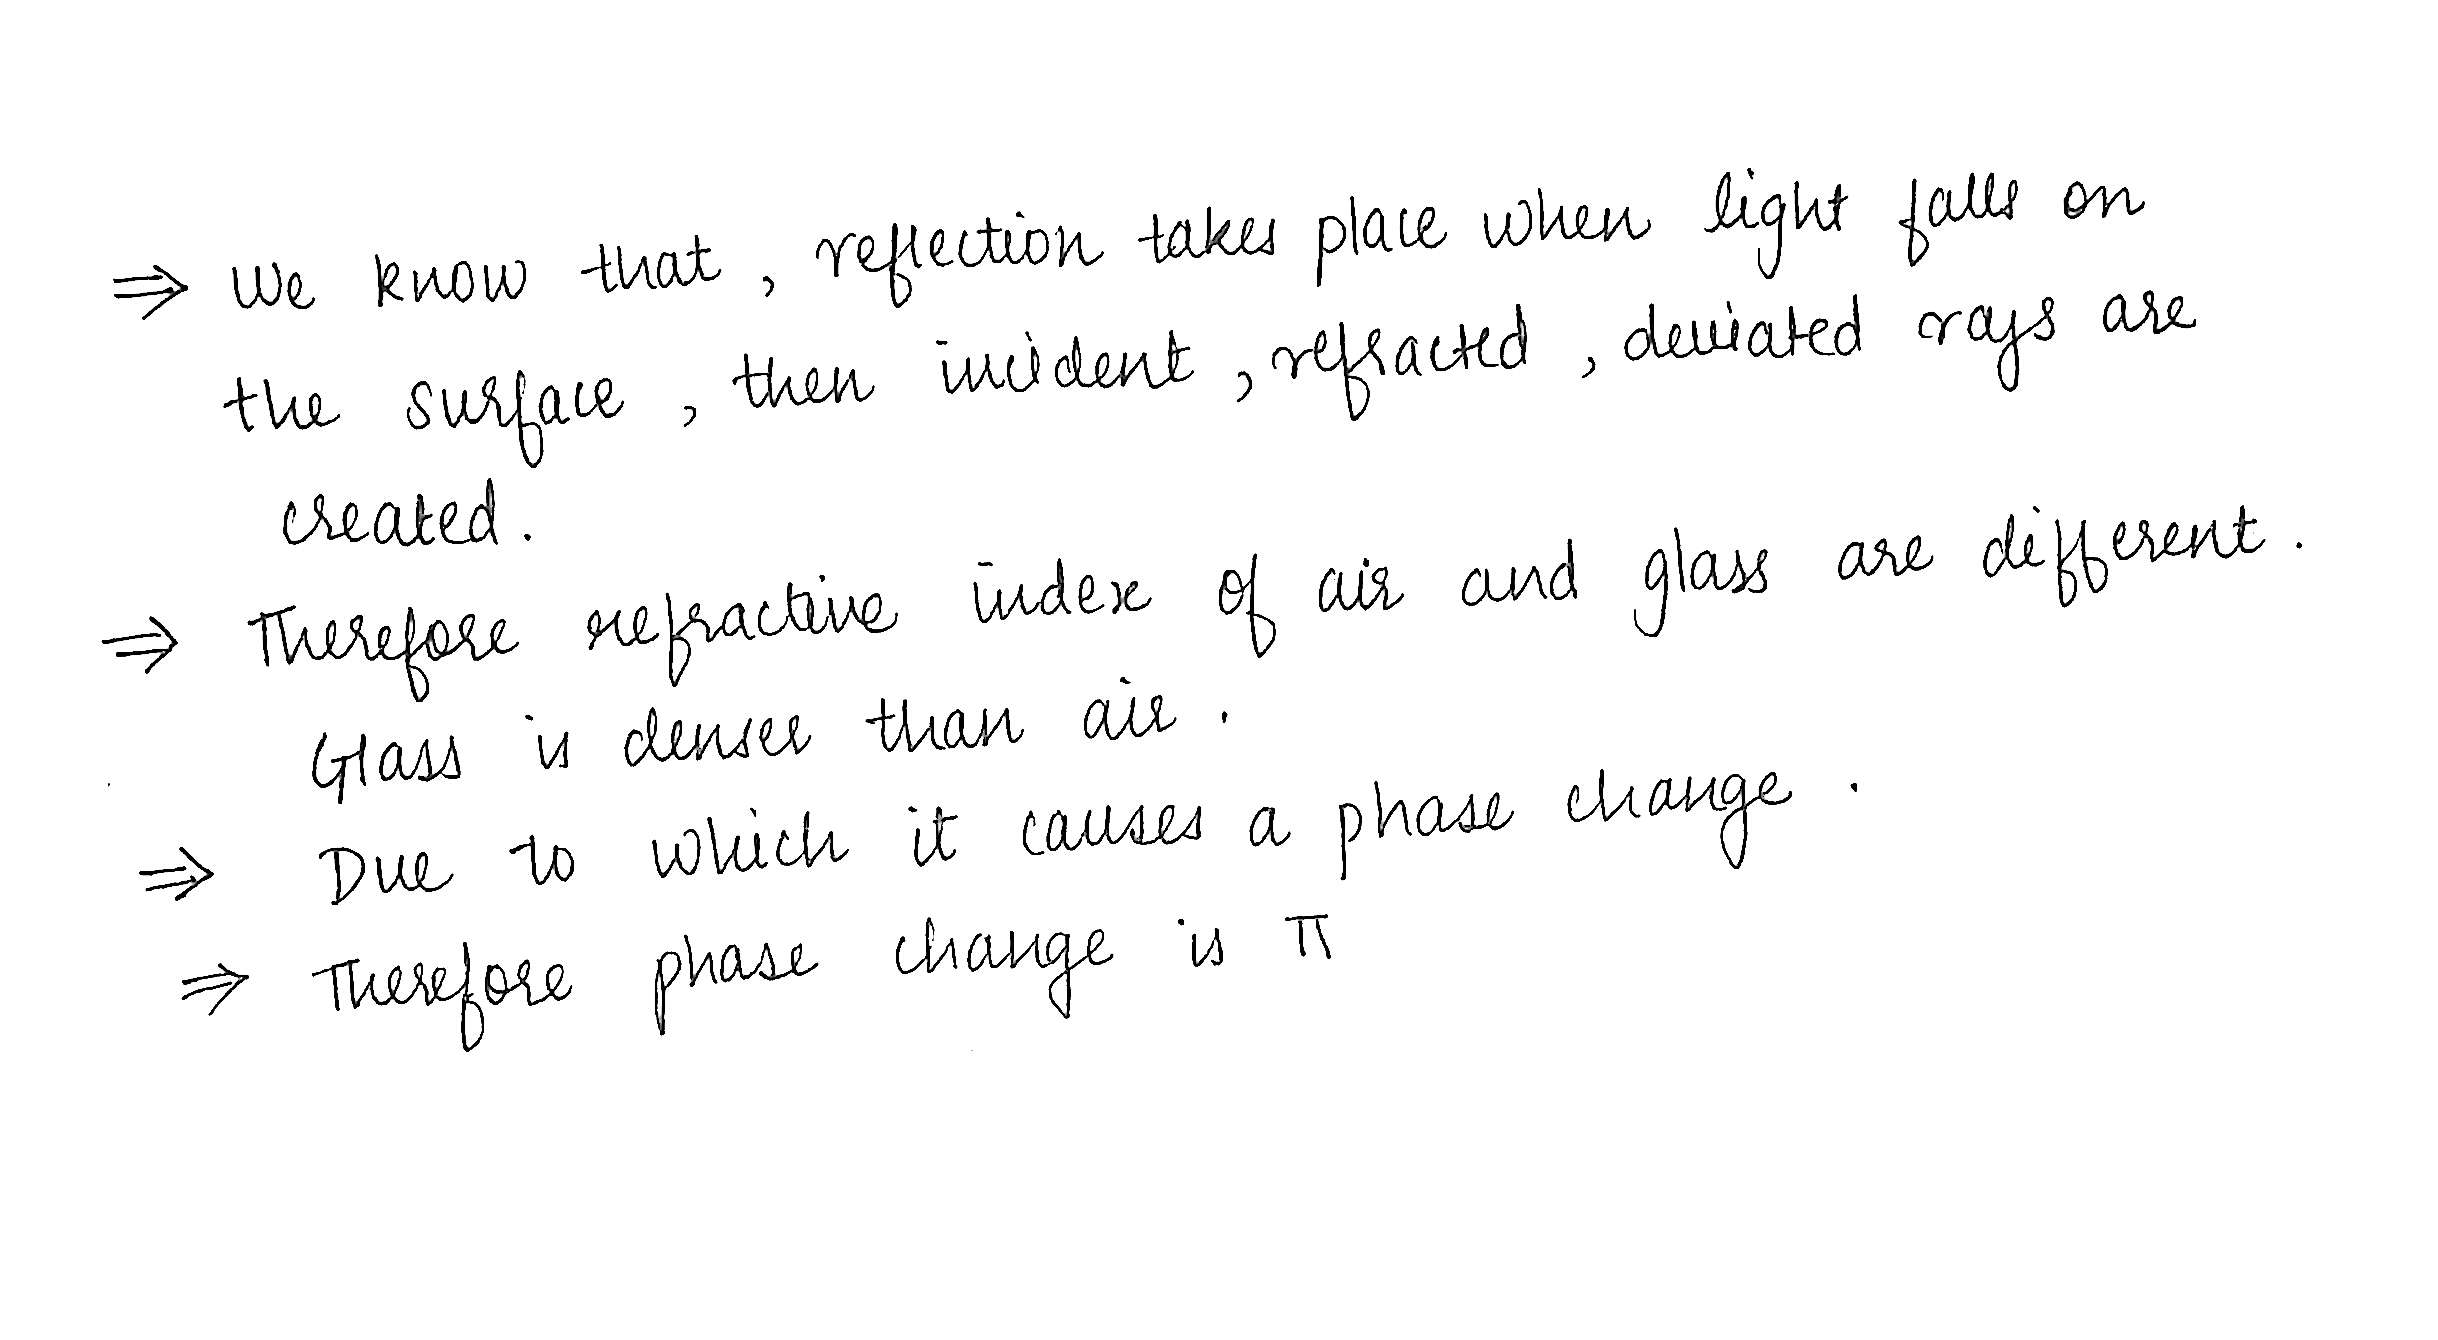 ⇒ We know that , reflection takes place when light falls on
the surface , then incident , refracted , deviated rays are
created .
⇒ Therefore refractive index of air and glass are different .
Glass is denser than air .
⇒ Due to which it causes a phase change .
⇒ Therefore phase change is π